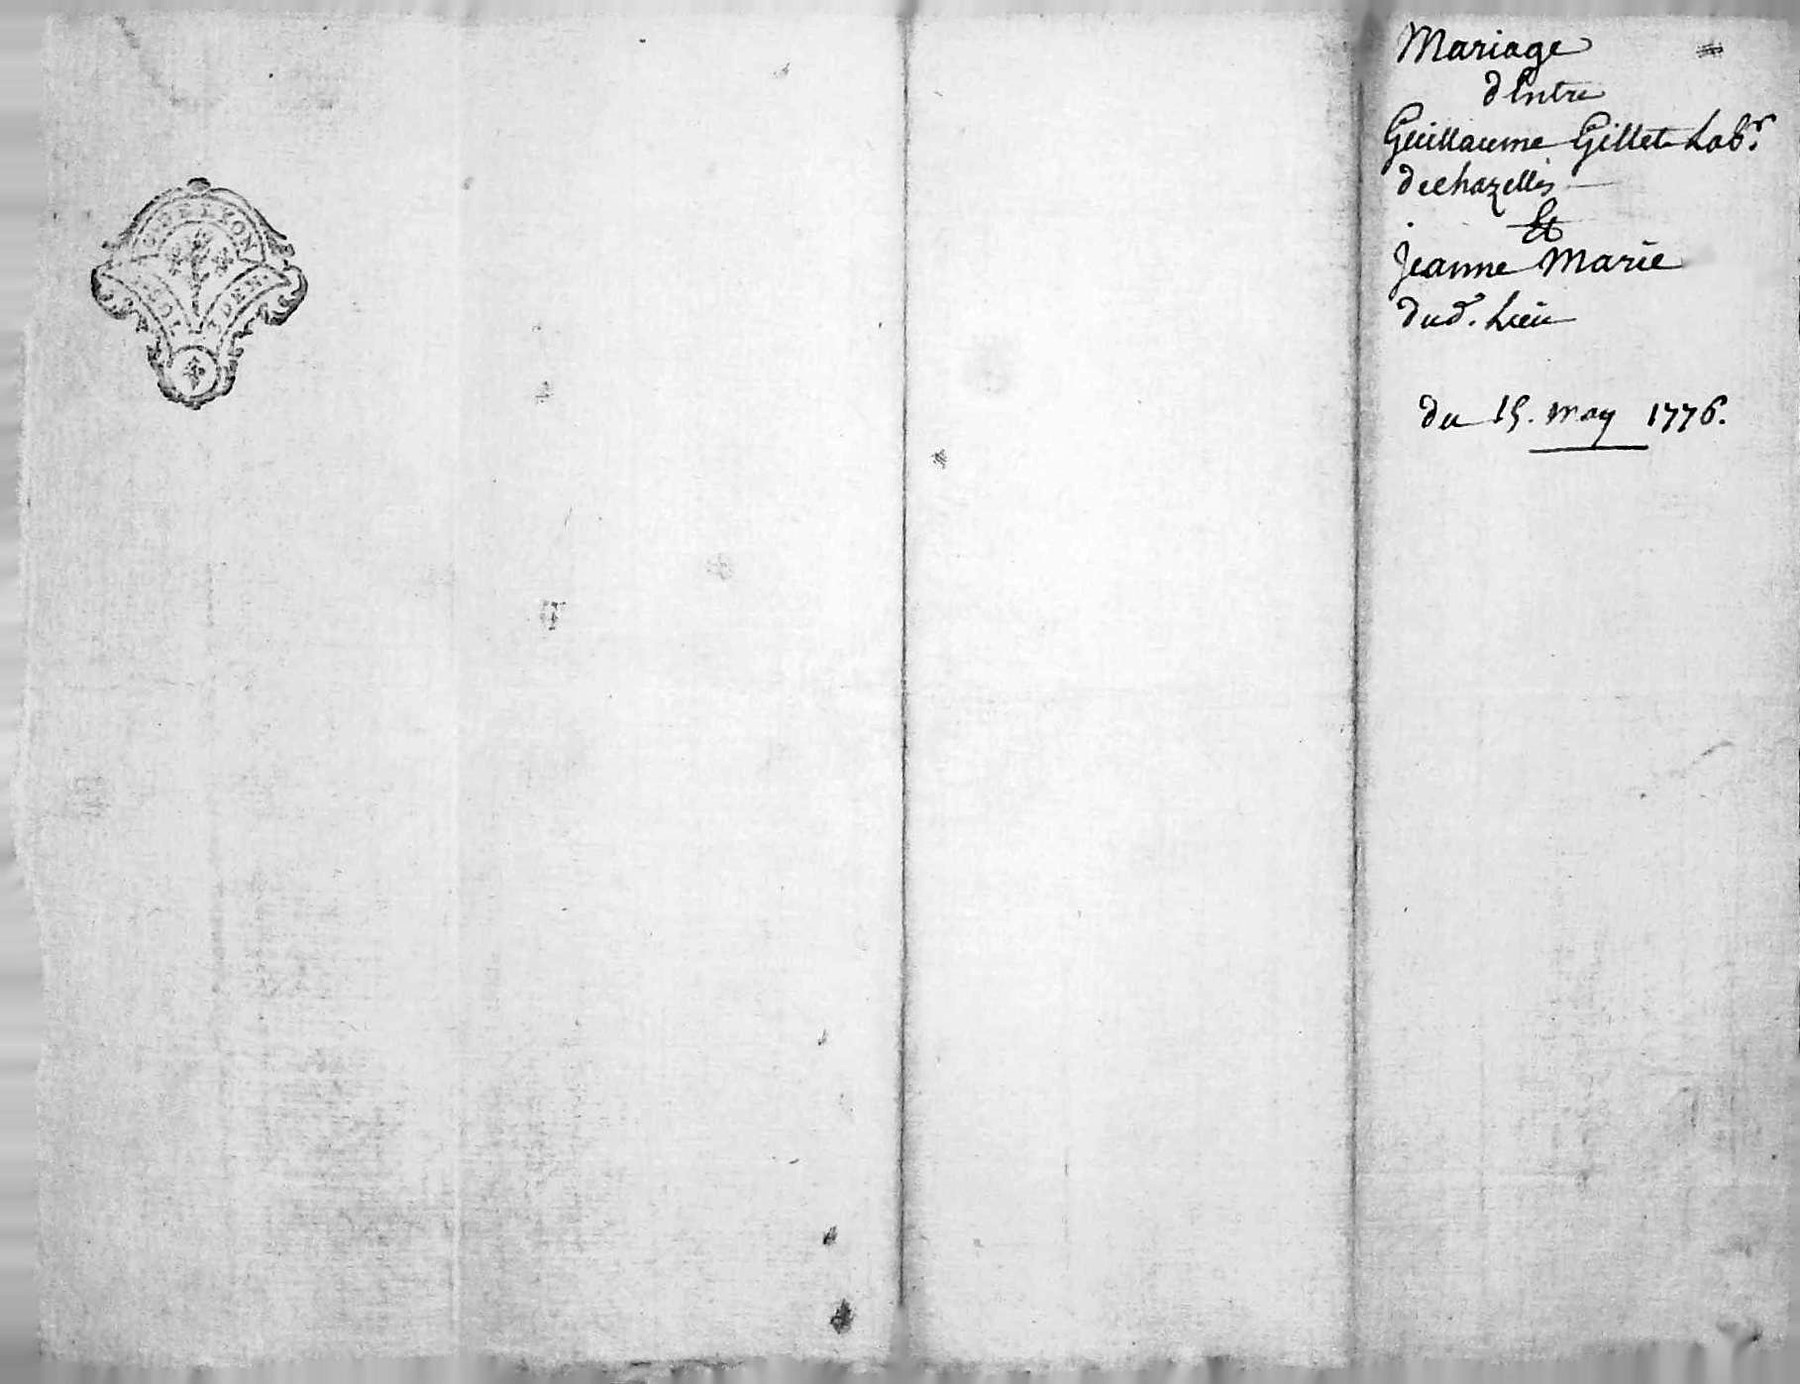 Mariage
d'Entre
Guillaume Gillet Lab.r
de chazelles
Et
Jeanne Marie
dud. Lieu
du 15. may 1776.